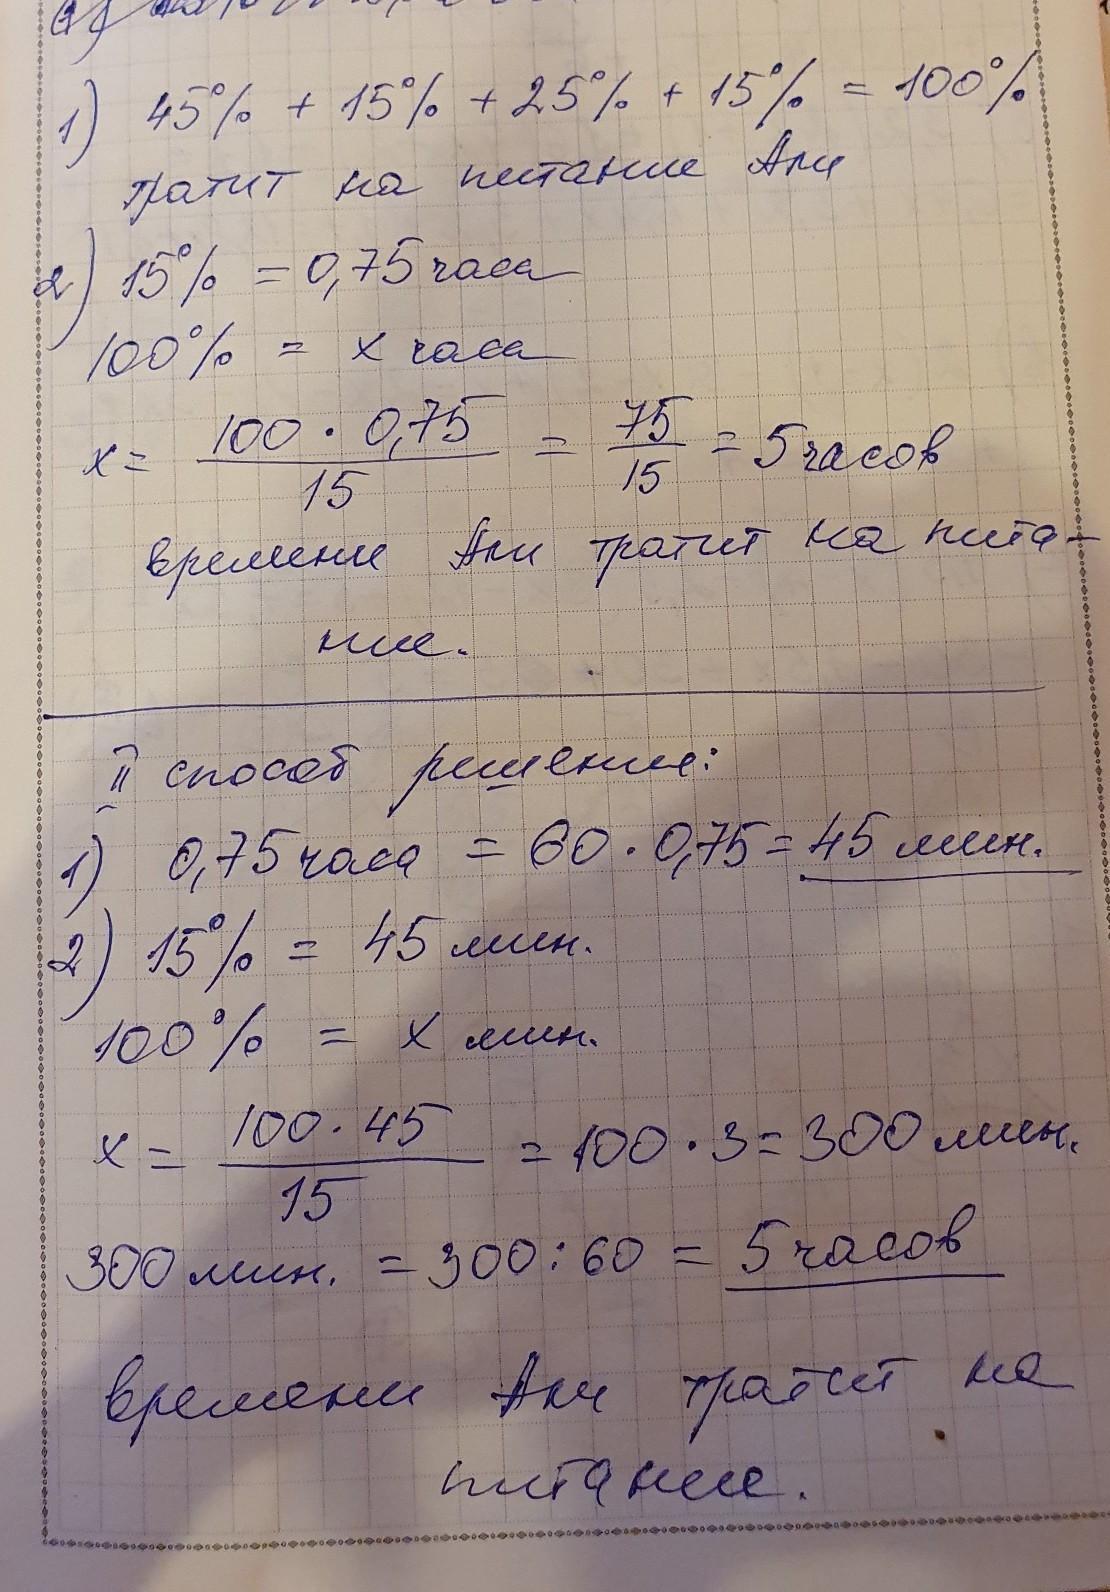 1) 45% + 15% + 25% + 15% = 100%
тратит на питание Али
2) 15% = 0,75 часа
100% = x часа
x = 100 · 0,75 / 15 = 75 / 15 = 5 часов
времени Али тратит на пита-
ние.
II способ решение:
1) 0,75 часа = 60 · 0,75 = 45 мин.
2) 15% = 45 мин.
100% = x мин.
x = 100 · 45 / 15 = 100 · 3 = 300 мин.
300 мин. = 300 : 60 = 5 часов
времени Али тратит на
питание.